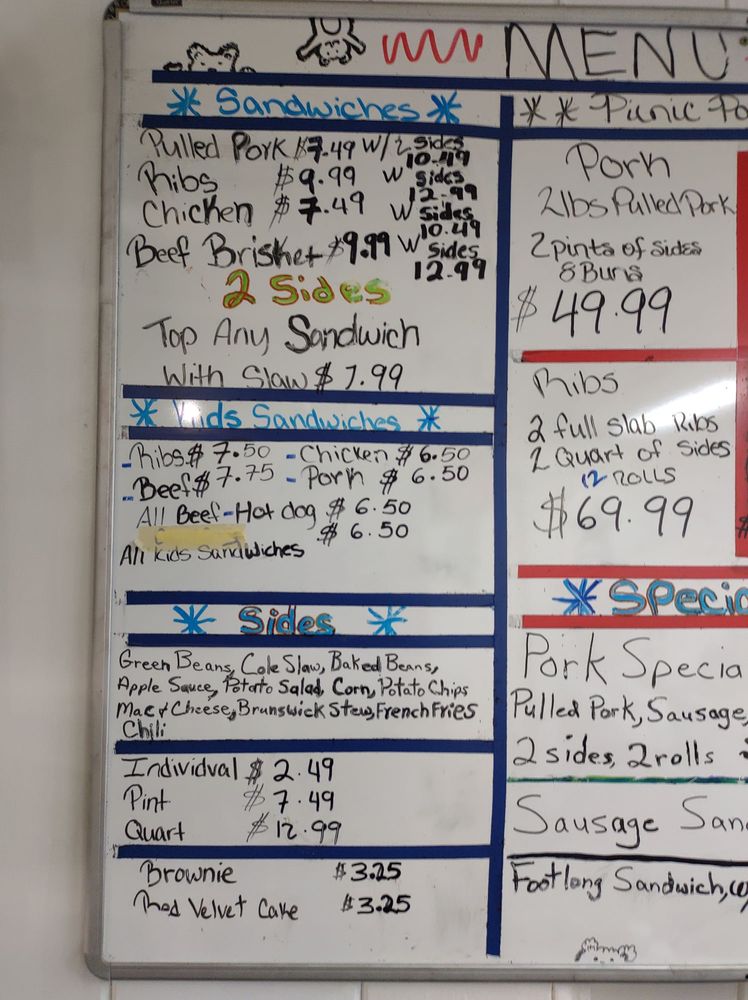 MENU
* Sandwiches *
Pulled Pork $7.49 W/2 Sides 10.49
Ribs $9.99 W Sides 12.99
Chicken $7.49 W Sides 10.49
Beef Brisket $9.99 W Sides 12.99
2 Sides
Top Any Sandwich
With Slaw $ 1.99
* Kids Sandwiches *
- Ribs $ 7.50 - Chicken $ 6.50
- Beef $ 7.75 - Pork $ 6.50
All Beef-Hot dog $ 6.50
$ 6.50
All Kids Sandwiches
* Sides *
Green Beans, Cole Slaw, Baked Beans,
Apple Sauce, Potato Salad, Corn, Potato Chips
Mac & Cheese, Brunswick Stew, French Fries
Chili
Individual $ 2.49
Pint $ 7.49
Quart $ 12.99
Brownie $3.25
Red Velvet Cake $3.25
* * Picnic Pa
Pork
2lbs Pulled Pork
2 pints of sides
8 Buns
$ 49.99
Ribs
2 full slab Ribs
2 Quart of Sides
12 ROLLS
$69.99
* Specia
Pork Specia
Pulled Pork, Sausage,
2 sides, 2 rolls
Sausage San
Footlong Sandwich, w